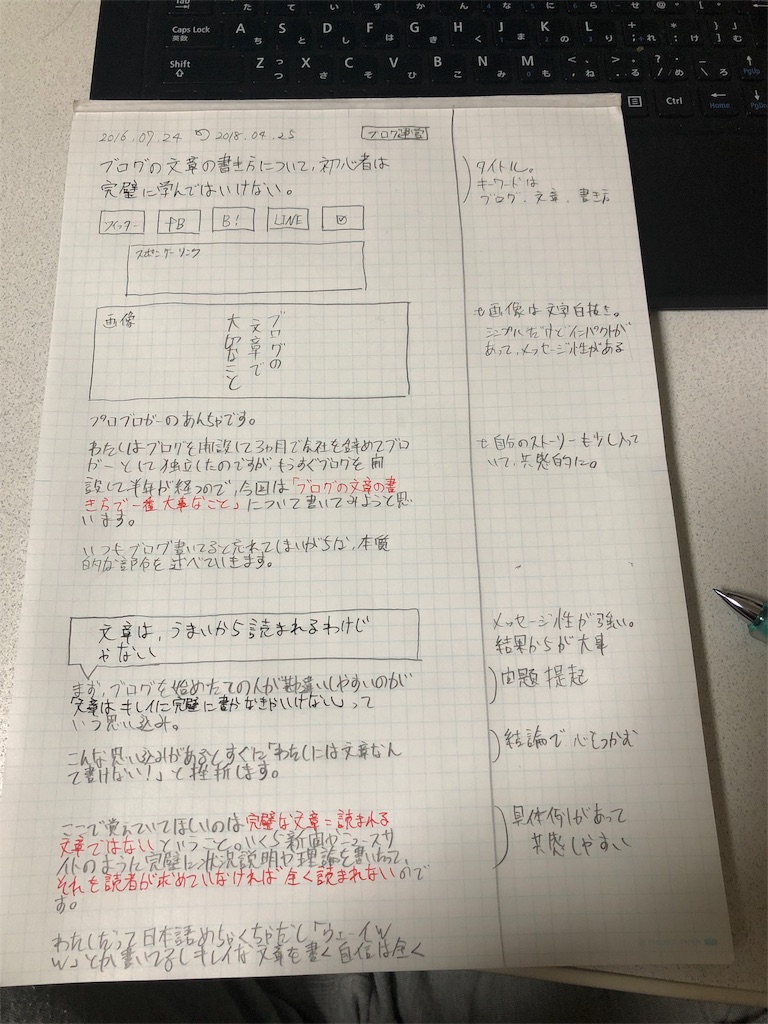 2016.07.24 2018.04.25
ブログ運営
ブログの文章の書き方について、初心者は
完璧に学んではいけない。
ツイッター fB B! LINE
スポンサーリンク
画像
ブログの
文章で
大切なこと
プロブロガーのあんちゃです。
わたしはブログを開設して3ヵ月で会社を辞めてブロ
ガーとして独立したのですが、もうすぐブログを開
設して半年が経つので、今回は「ブログの文章の書
き方で一番大事なこと」について書いてみようと思
います。
いつもブログ書いてると忘れてしまいがちな、本質
的な部分を述べていきます。
文章は、うまいから読まれるわけじ
ゃない
まず、ブログを始めたての人が勘違いしやすいのが
文章はキレイに完璧に書かなきゃいけないって
いう思い込み。
こんな思い込みがあるとすぐに「わたしには文章なん
て書けない!」と挫折します。
ここで覚えていてほしいのは完璧な文章=読まれる
文章ではないということ。いくら新聞やニュースサ
イトのように完璧に状況説明や理論を書いたって、
それを読者が求めていなければ全く読まれないので
す。
わたしだって日本語めちゃくちゃだし「ウェーイw
w」とか書いてるしキレイな文章を書く自信は全く
タイトル。
キーワードは
ブログ、文章、書き方
画像は文字白抜き。
シンプルだけどインパクトが
あって、メッセージ性がある
自分のストーリーも少し入って
いて、共感的に。
メッセージ性が強い。
結果からが大事
問題提起
結論で心をつかむ
具体例があって
共感しやすい
Caps Lock
英数
A S D F G H J K L
ち と し は き く ま の り れ け む
Shift
Z X C V B N M
つ さ そ ひ こ み も ね る め ろ
Ctrl
Home
PgUp
PgDn